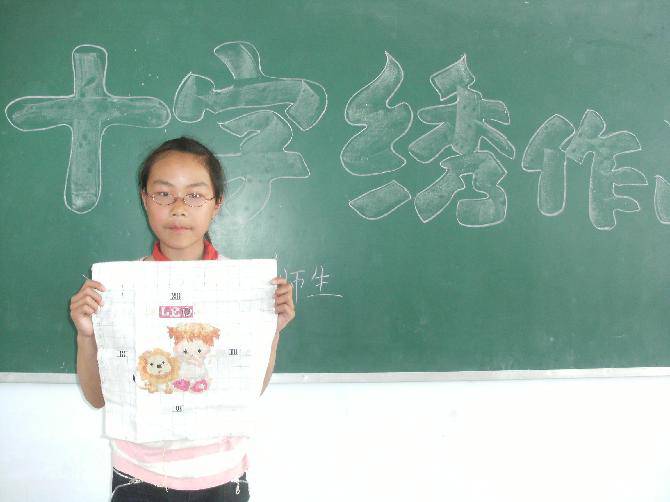 十字绣作
师生
LEO